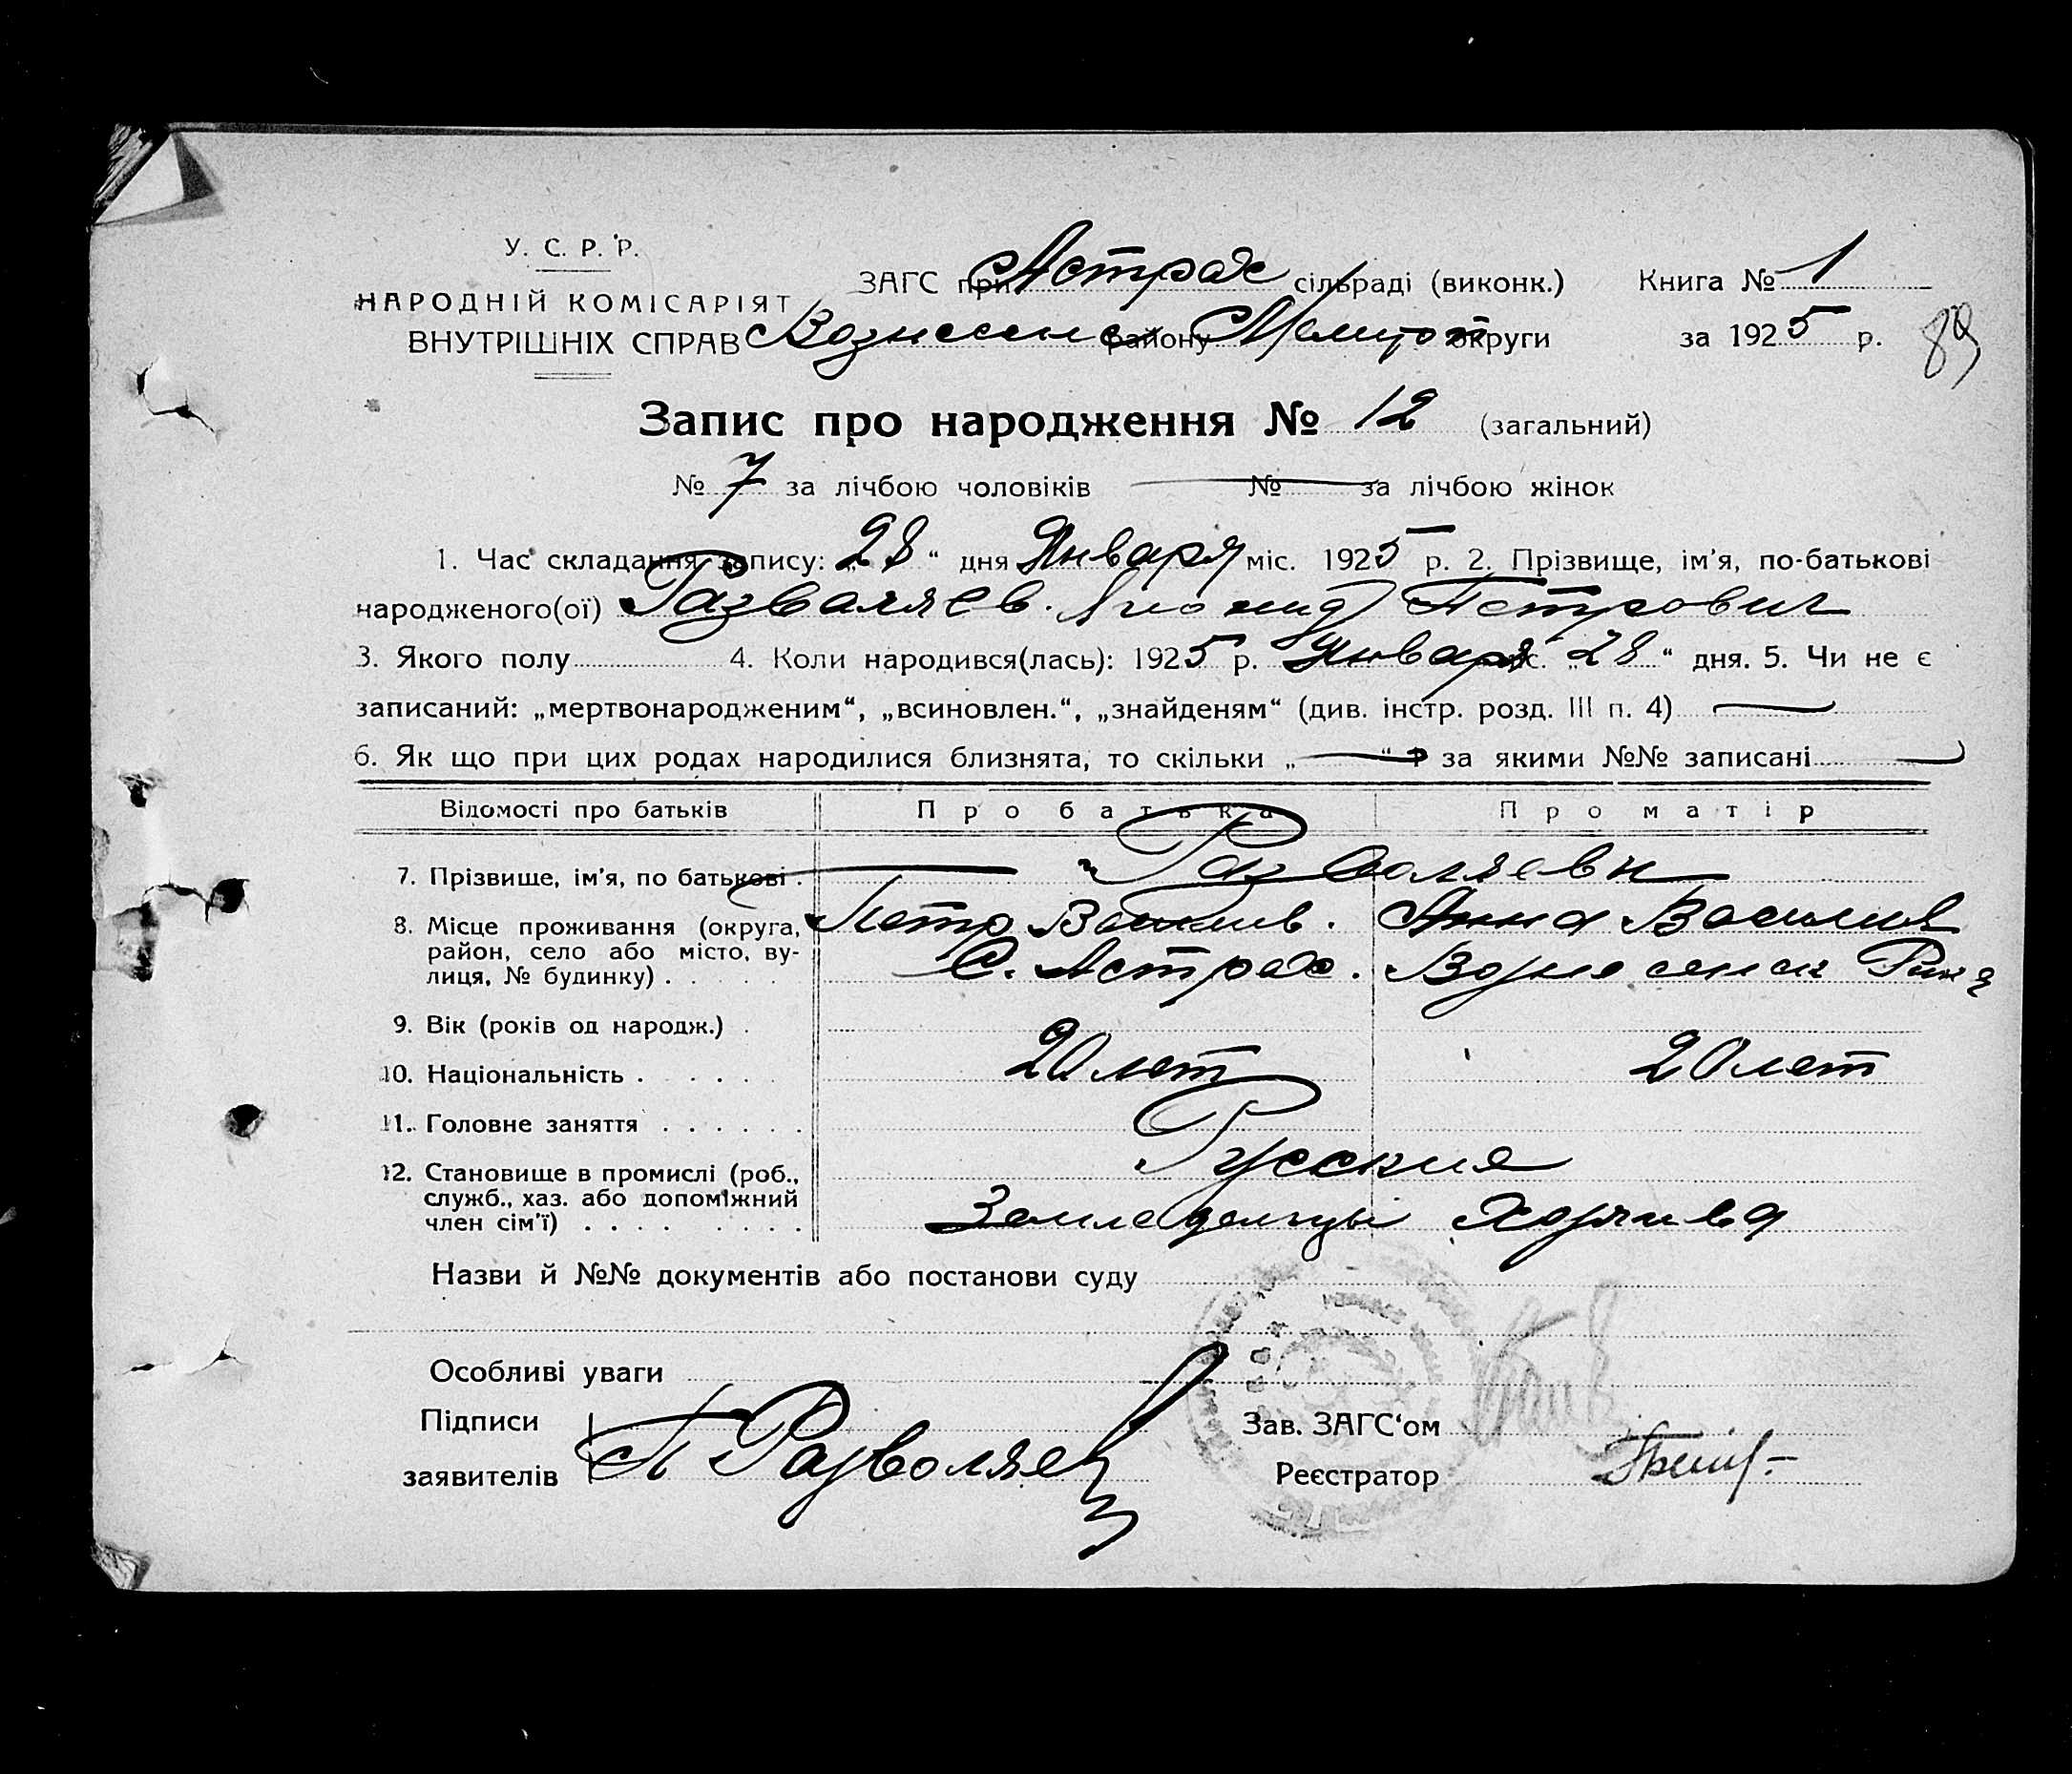 У. С. Р. Р.
НАРОДНІЙ КОМІСАРІЯТ
ВНУТРІШНІХ СПРАВ
ЗАГС при Астрах сільраді (виконк.) Книга № 1
Вознесенс району Мелитоп округи за 1925 р.
89
Запис про народження № 12 (загальний)
№ 7 за лічбою чоловіків № за лічбою жінок
1. Час складання запису: „28“ дня Января міс. 1925 р. 2. Прізвище, ім'я, по-батькові
народженого(ої) Разваляев. Леонид Петрович
3. Якого полу 4. Коли народився(лась): 1925 р. Января міс. „28“ дня. 5. Чи не є
записаний: „мертвонародженим“, „всиновлен.“, „знайденям“ (див. інстр. розд. III п. 4)
6. Як що при цих родах народилися близнята, то скільки „ “ за якими №№ записані
Відомості про батьків Про батька Про матір
7. Прізвище, ім'я, по батькові. Разваляевы
8. Місце проживання (округа, Петр Василив. Анна Василив
район, село або місто, ву-
лиця, № будинку) С. Астрах. Вознесенск
9. Вік (років од народж.)
10. Національність 20 лет 20 лет
11. Головне заняття
12. Становище в промислі (роб., Русские
служб., хаз. або допоміжний
член сім'ї) Земледельцы
Назви й №№ документів або постанови суду
Особливі уваги
Підписи Зав. ЗАГС'ом
заявителів П Разволяев Реєстратор